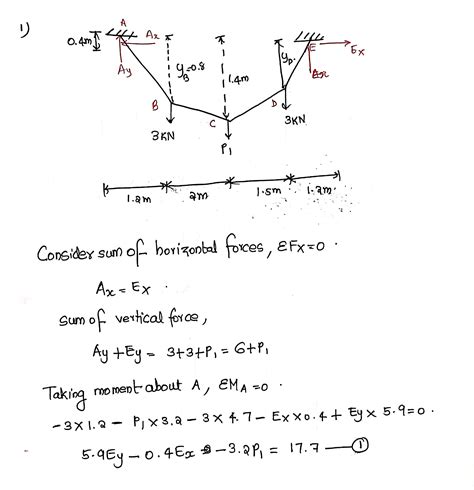 1)
A
0.4m
Ax
Ay
yB=0.8
1.4m
yD.
E
Ex
B
C
D
3KN
P1
3KN
1.2m
2m
1.5m
1.2m.
Consider sum of horizontal forces, ΣFx=0.
Ax = Ex.
sum of vertical force,
Ay + Ey = 3+3+P1 = 6+P1
Taking moment about A, ΣMA=0.
-3×1.2 - P1×3.2 - 3×4.7 - Ex×0.4 + Ey×5.9=0.
5.9Ey - 0.4Ex - 3.2P1 = 17.7 — ①